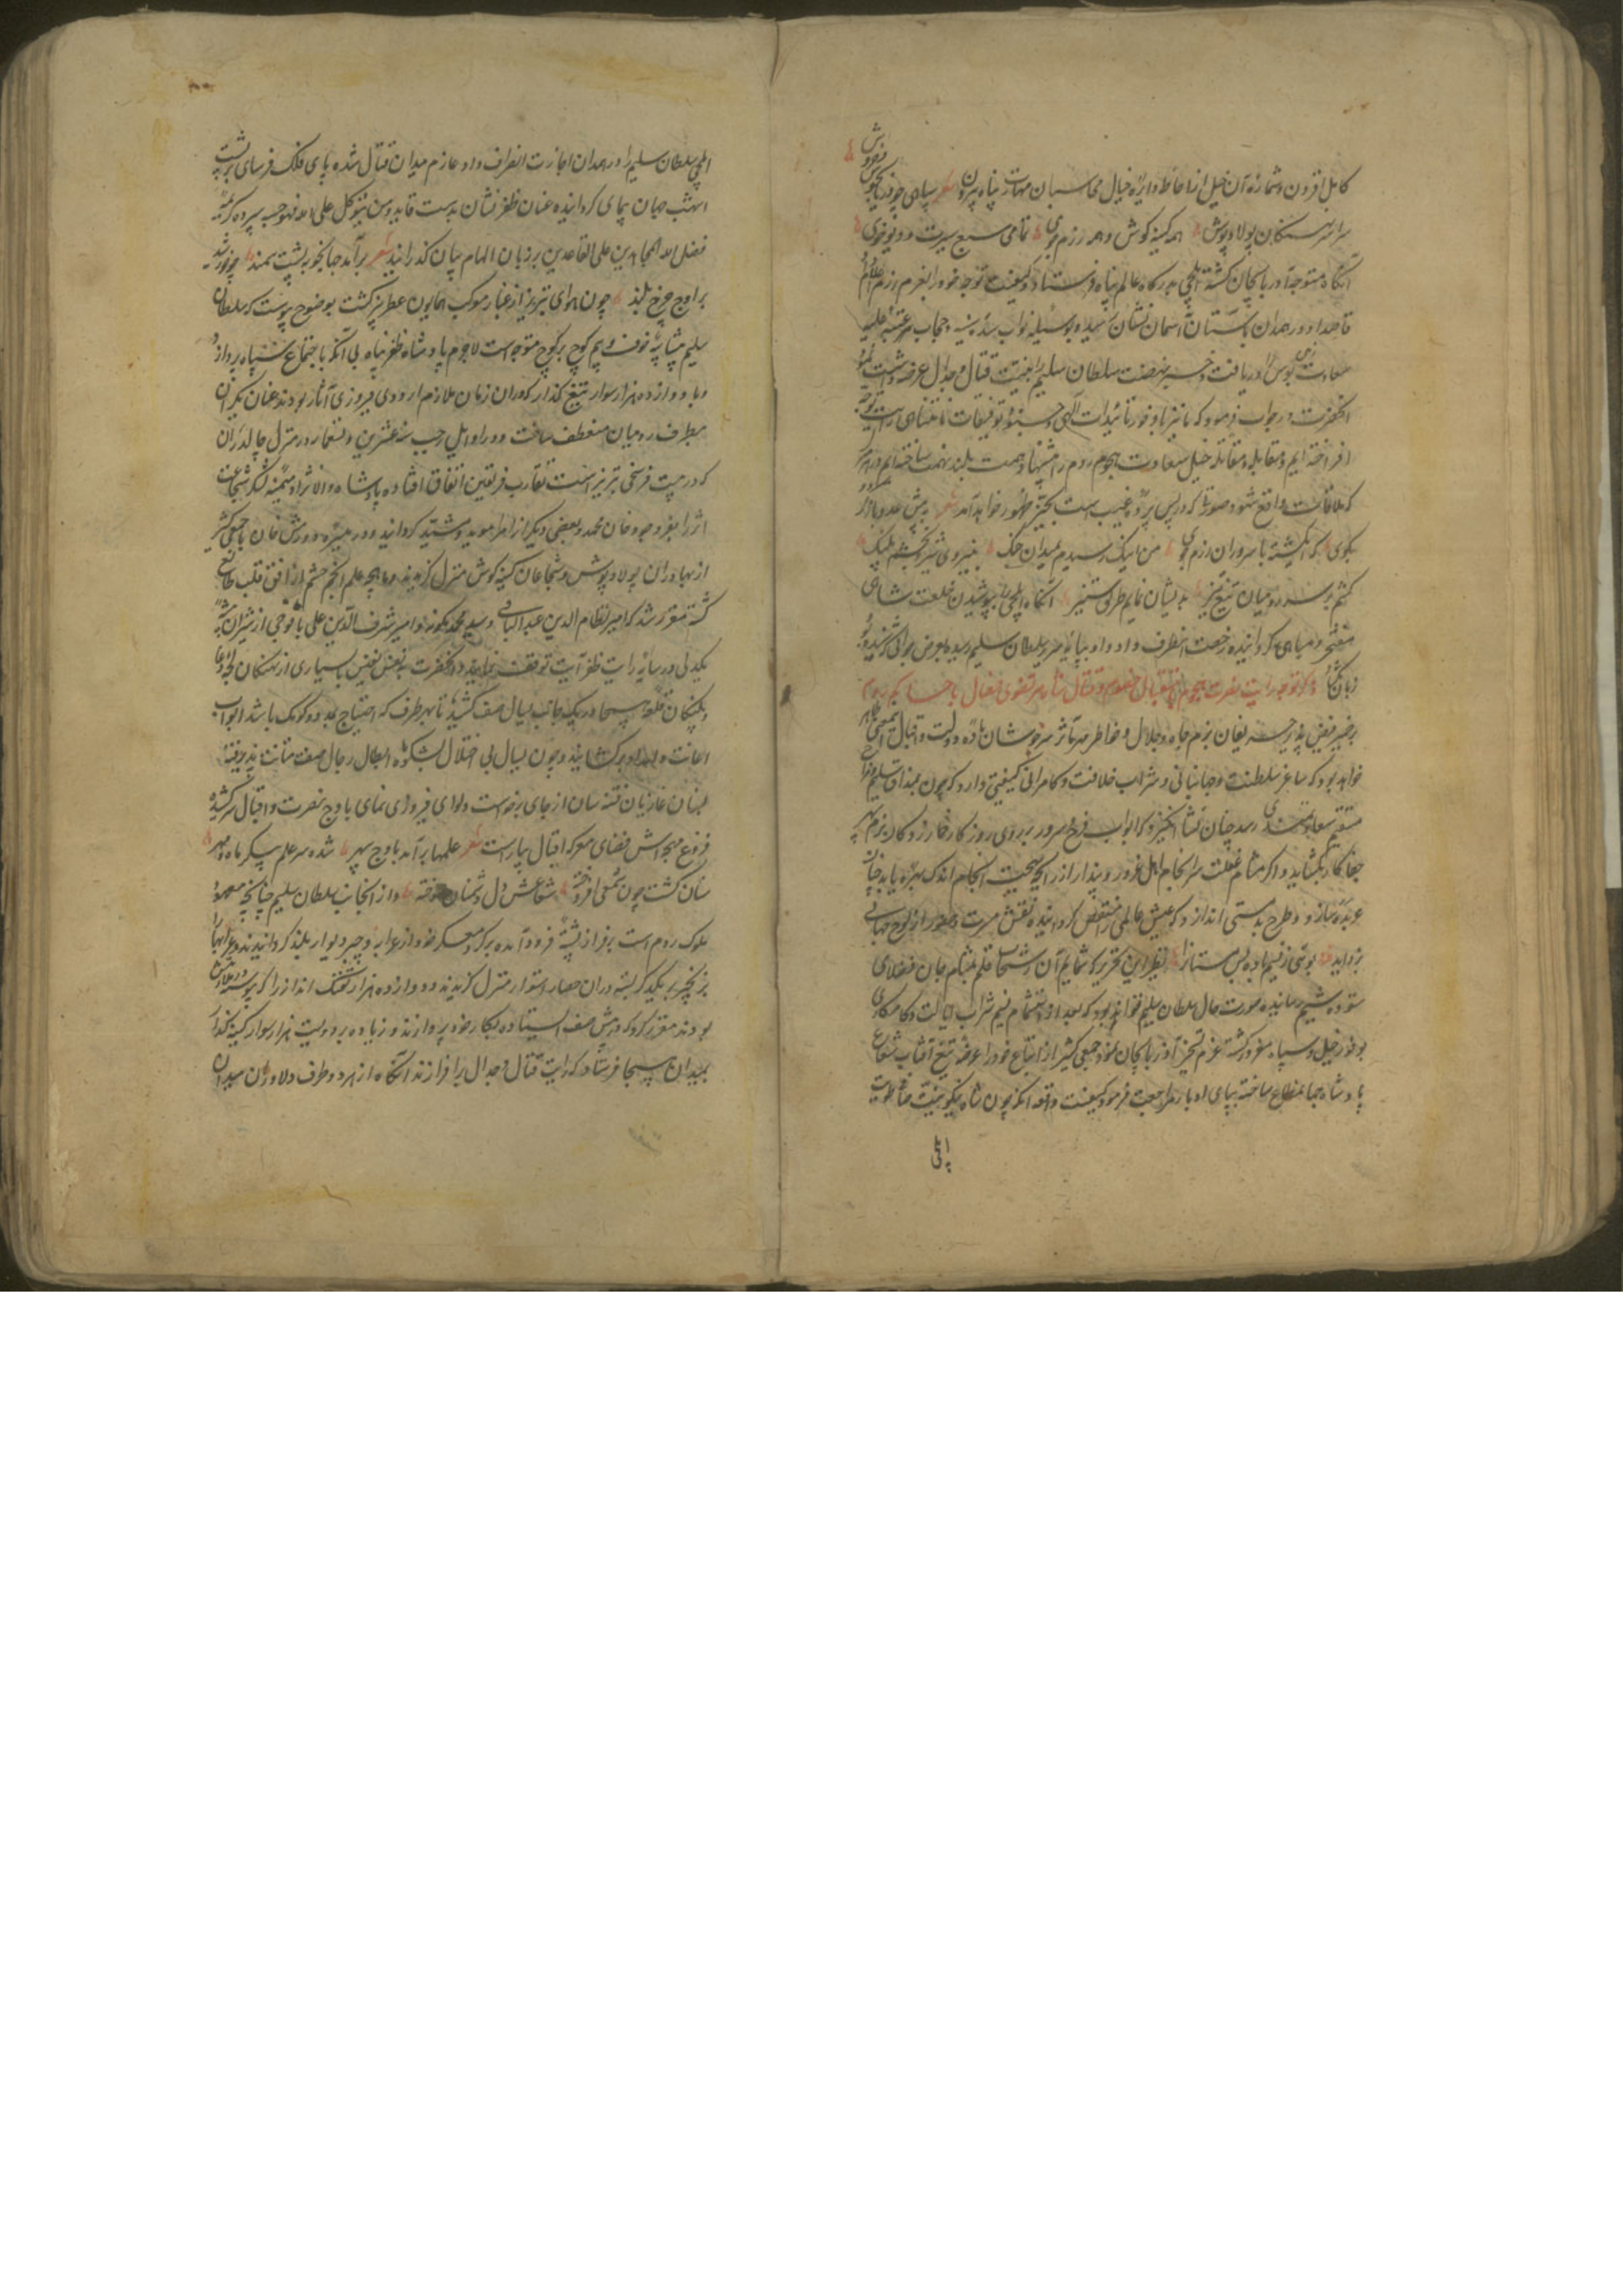 کامل افزون و شماره آن خیل از احاطه دایره خیال محاسبان مهارت پناه بیرون شعر سپاهی چو دریا بجوش
خروش
سراسر بولاد پوش همه کینه کوش و همه رزم جوی تمامی سبع سیرت و دیو خوی
آنگاه متوجه آذربایجان کشته ایلچی بدرکاه عالم پناه فرستاد و کیفیت توجه خود را بعزم رزم اعلام
قاصد او در همدان باستان آسمان نشان رسیده بوسیله نواب سده سنیه و حجاب عتبه علیه
سعادت بساط بوس دریافت و خبر نهضت سلطان سلیم را بنیت قتال و جدال عرضه داشت نمود
آنحضرت در جواب فرمود که ما نیز بنا بر وفور تائیدات الهی و توفیقات نامتناهی رایت توجه
افراخته ایم و مقابله و مقاتله خیل سعادت هجوم روم را پیش نهاد همت بلند نهمت ساخته ایم و هر کجا
که ملاقات واقع شود صورتی که در پس پرده غیب است بحیز ظهور خواهد آمد شعر
بکوی که ای کشته با سروران رزم جوی من اینک رسیدم بمیدان جنگ بنیروی شیر و بخشم پلنگ
کشم بر سر رومیان تیغ تیز بدیشان نمایم طریق ستیز آنگاه ایلچی را بپوشیدن خلعت شاهی
مفتخر و مباهی کردانیده رخصت انصراف داد و او بپایه سریر سلطان سلیم رسیده بعرض جوابی که شنیده بود
زبان کشاد ذکر توجه رایت نصرت هجوم باستقبال خصوم و قتال شاه مرتضوی فعال با عساکر روم
بر ضمیر فیض پذیر حریفان بزم جاه و جلال و خاطر مهر تاثیر سرخوشان باده دولت و اقبال این معنی ظاهر
خواهد بود که ساغر سلطنت و جهانبانی و شراب خلافت و کامرانی کیفیتی دارد که چون بمذاق سلیم مزاج
مستقیم سعادتمندی رسد چنان نشأ انکیزد که ابواب فرح و سرور بر روی روزکار خمار زدکان بزم سپهر
جفاکار بکشاید و اکر مشام غفلت سرانجام اهل غرور و پندار از رایحه نکهت انجام اندک بهره یابد چنان
عربده ساز و طرح بدمستی اندازد که عیش عالمی را منغص کردانیده نقش مسرت و حضور از لوح جهانی
بزداید بوئی ز نسیم باده بس مستانرا نظیر این تقریر که شمایم آن رشحات قلم بمشام جان فضلای
ستوده شیم رسانیده صورت حال سلطان سلیم تواند بود که بعد از استشمام نسیم شراب ایالت و کامکاری
بوفور خیل و سپاه مغرور کشته عزم تسخیر آذربایجان نمود و جمعی کثیر از اتباع خود را عرضه تیغ آفتاب شعاع
پادشاه جهانمطاع ساخته بپای ادبار مراجعت فرمود کیفیت واقعه آنکه چون شاه نیکو نیت
ایلچی
ایلچی سلطان سلیم را در همدان اجازت انصراف داد عازم میدان قتال شده پای فلک فرسای بر پشت
اشهب جهان پیمای کردانیده عنان ظفر نشان بدست قاید و من یتوکل علی الله فهو حسبه سپرده کریمه
فضل الله المجاهدین علی القاعدین بر زبان الهام بیان کذرانید شعر برآمد جهانجو به پشت سمند چو خورشید
بر اوج چرخ بلند چون هوای تبریز از غبار موکب همایون عطر بیز کشت بوضوح پیوست که سلطان
سلیم بی شایبه خوف و بیم کوچ بر کوچ متوجه است لاجرم پادشاه ظفر پناه بی آنکه باجتماع سپاه پردازد
با دوازده هزار سوار تیغ کذار که در آن زمان ملازم اردوی فیروزی آثار بودند عنان یکران
بطرف رومیان منعطف ساخت و در اوایل رجب سنه عشرین و تسعمایه در منزل چالدران
که در بیست فرسخی تبریز است تقارب فریقین اتفاق افتاده پادشاه والا نژاد میمنه لشکر شجاعت
اثر را بفر وجود خان محمد و بعضی دیکر از امرا موید و مشید کردانید و در میسره دورمش خان با جمعی کثیر
از بهادران بولاد پوش و شجاعان کینه کوش منزل کزیدند و ماهچه علم انجم حشم از افق قلب طالع
کشته مقرر شد که امیر نظام الدین عبد الباقی و سید محمد کمونه و امیر شرف الدین علی با فوجی از شیران بیشه
یکدلی در سایه رایت ظفر آیت توقف نمایند و آنحضرت بنفس نفیس با بسیاری از نهنکان لجه وغا
و پلنکان قله هیجا در یک جانب یسال صف کشید تا بهر طرف که احتیاج بمدد و کومک باشد ابواب
اعانت و امداد برکشایند و چون یسال بی اختلال بشکوه ابطال رجال صفت متانت پذیرفته
لبنان غازیان فتنه سان از جای برخواست و لوای فیروزی نمای باوج نصرت و اقبال سر کشیده
فروغ مهجه اش فضای معرکه اقتال بیاراست شعر علمها برآمد باوج سپهر شده سر علم پیکر ماه و مهر
سنان کشت چون شمعی افروخته شعاعش دل دشمنان سوخته و از آنجانب سلطان سلیم چنانچه معهود
ملوک روم است بر فراز پشته فرود آمده بر کرد معسکر خود از عرابه و چپر دیوار بلند کردانیدند و عرابها را
بزنجیر بر یکدیکر بسته در آن حصار استوار منزل کزیدند و دوازده هزار تفنک انداز را که پیوسته در ملازمتش
بودند مقرر کرد که در پیش صف ایستاده بکار خود پردازند و زیاده بر دویست هزار سوار کینه کذار
بمیدان هیجا فرستاد که رایت قتال و جدال برافرازند آنگاه از هر دو طرف دلاوران میدان